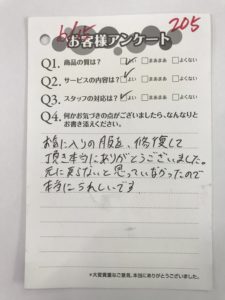 6/15
205
お客様アンケート
Q1. 商品の質は? ☑よい □まあまあ □よくない
Q2. サービスの内容は? ☑よい □まあまあ □よくない
Q3. スタッフの対応は? ☑よい □まあまあ □よくない
Q4. 何かお気づきの点がございましたら、なんなりと
お書き添えください。
お気に入りの服を、修復して
頂き本当にありがとうございました。
元に戻らないと思っていなかったので
本当にうれしいです
*大変貴重なご意見、本当にありがとうございました。